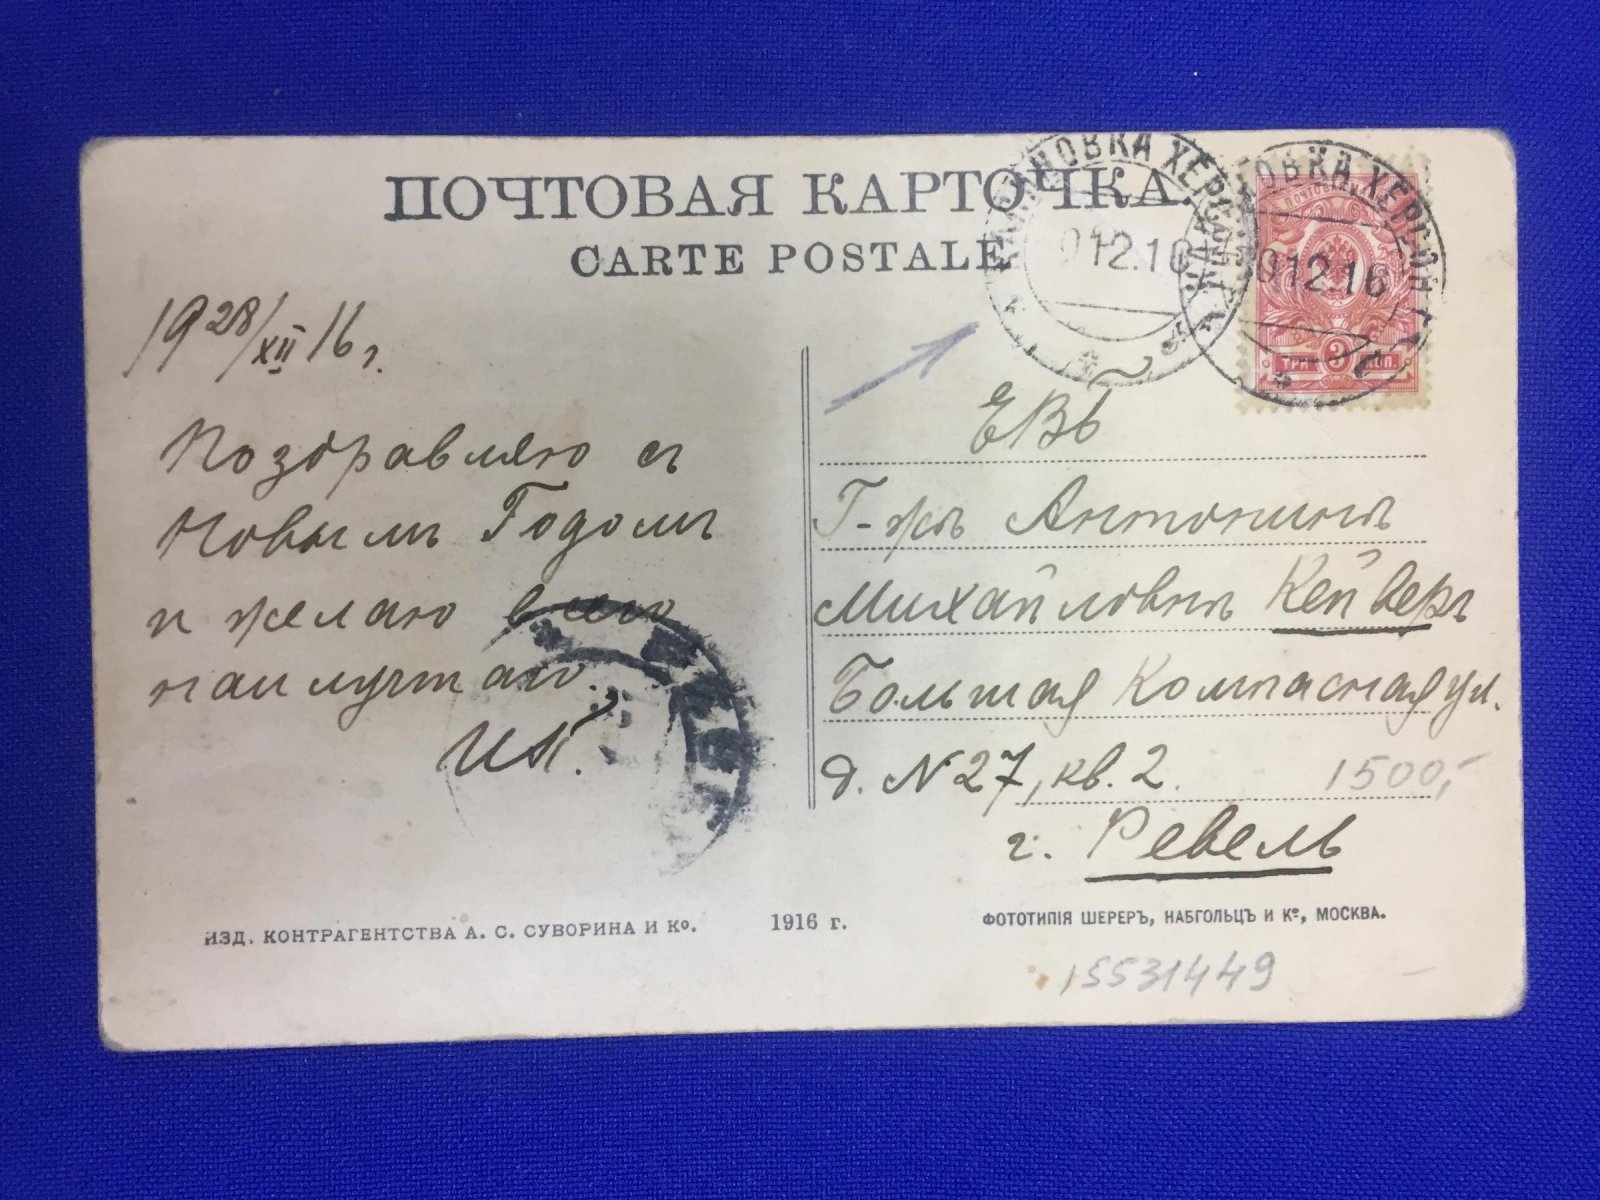 ПОЧТОВАЯ КАРТОЧКА.
CARTE POSTALE
ХЕРСОН
012.16
ОВКА ХЕРСОН
012.16
ТРИ 3 КОП.
19 28/XII 16 г.
Поздравляю съ
Новымъ Годомъ
и желаю всего
наилучшаго.
ЕВБ
Г-жѣ Антонинѣ
Михайловнѣ Кейверъ
Большая Компасная ул.
д. N 27, кв. 2.
1500,-
г. Ревель
ИЗД. КОНТРАГЕНТСТВА А. С. СУВОРИНА И Ко. 1916 г.
ФОТОТИПІЯ ШЕРЕРЪ, НАБГОЛЬЦЪ И Ко, МОСКВА.
15531449